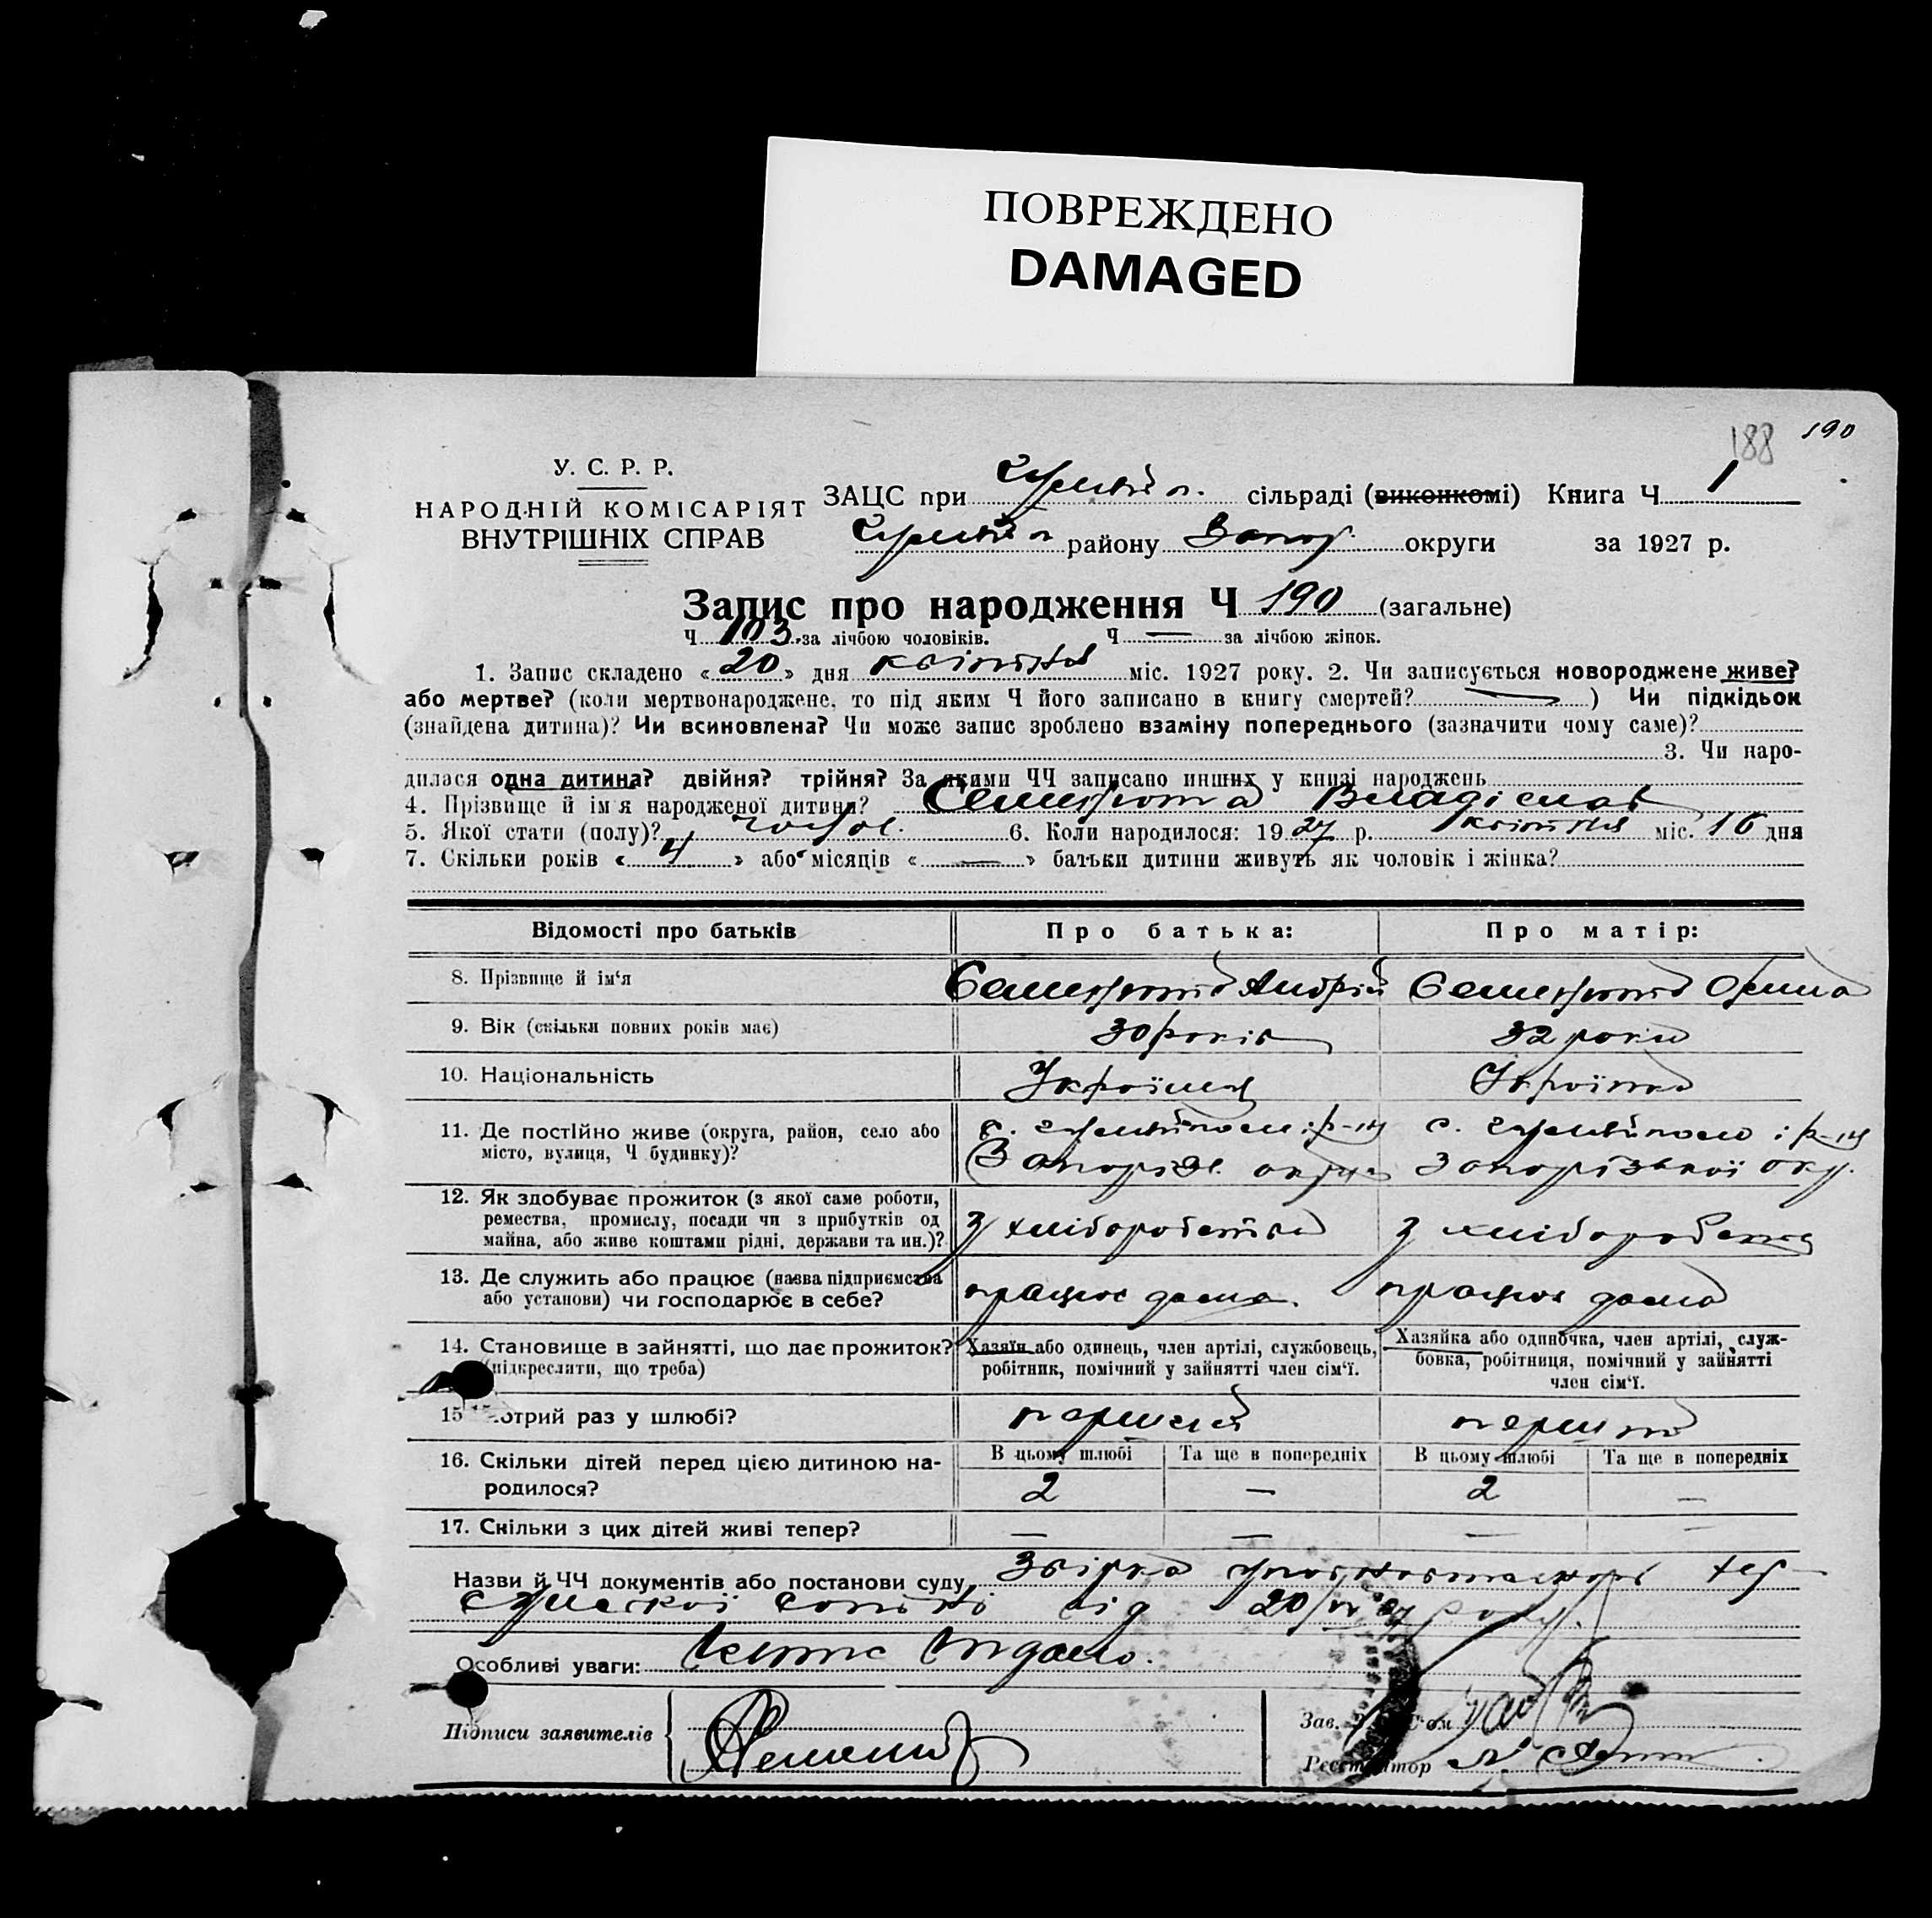 ПОВРЕЖДЕНО
DAMAGED
188 190
У. С. Р. Р.
НАРОДНІЙ КОМІСАРІЯТ
ВНУТРІШНІХ СПРАВ
ЗАЦС при Гуляйп. сільраді (виконкомі) Книга Ч 1
Гуляйп району Запор. округи за 1927 р.
Запис про народження Ч 190 (загальне)
Ч 103 за лічбою чоловіків. Ч — за лічбою жінок.
1. Запис складено «20» дня квітня міс. 1927 року. 2. Чи записується новороджене живе?
або мертве? (коли мертвонароджене, то під яким Ч його записано в книгу смертей? — ) Чи підкідьок
(знайдена дитина)? Чи всиновлена? Чи може запис зроблено взаміну попереднього (зазначити чому саме)?
3. Чи наро-
дилася одна дитина? двійня? трійня? За якими ЧЧ записано инших у книзі народжень
4. Прізвище й ім'я народженої дитини? Семирота Владіслав
5. Якої стати (полу)? чолов. 6. Коли народилося: 1927 р. квітня міс. 16 дня
7. Скільки років «4» або місяців «—» батьки дитини живуть як чоловік і жінка?
Відомості про батьків Про батька: Про матір:
8. Прізвище й ім'я Семирота Андрій Семирота Орина
9. Вік (скільки повних років має) 30 років 32 роки
10. Національність Українец Українка
11. Де постійно живе (округа, район, село або
місто, вулиця, Ч будинку)? с. Гуляйполе і р-ну
Запоріж. округи с. Гуляйполе і р-ну
Запорізької окр.
12. Як здобуває прожиток (з якої саме роботи,
ремества, промислу, посади чи з прибутків од
майна, або живе коштами рідні, держави та ин.)? З хліборобства З хліборобства
13. Де служить або працює (назва підприємства
або установи) чи господарює в себе? працює дома. працює дома
14. Становище в зайнятті, що дає прожиток?
(підкреслити, що треба) Хазяїн або одинець, член артілі, службовець,
робітник, помічний у зайнятті член сім'ї. Хазяйка або одиночка, член артілі, служ-
бовка, робітниця, помічний у зайнятті
член сім'ї.
15 котрий раз у шлюбі? перший перший
16. Скільки дітей перед цією дитиною на-
родилося? В цьому шлюбі Та ще в попередніх В цьому шлюбі Та ще в попередніх
2 — 2 —
17. Скільки з цих дітей живі тепер? — — — —
Назви й ЧЧ документів або постанови суду
від 20/IV 27 року.
Особливі уваги: видано.
Підписи заявителів
Зав.
Реєстратор